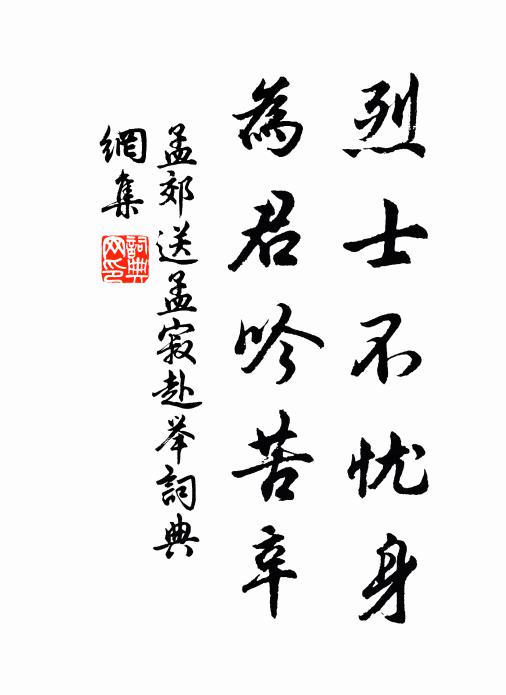 烈士不忧身
為君吟苦辛
孟郊送孟寂赴举詞典
網集
詞典
网印